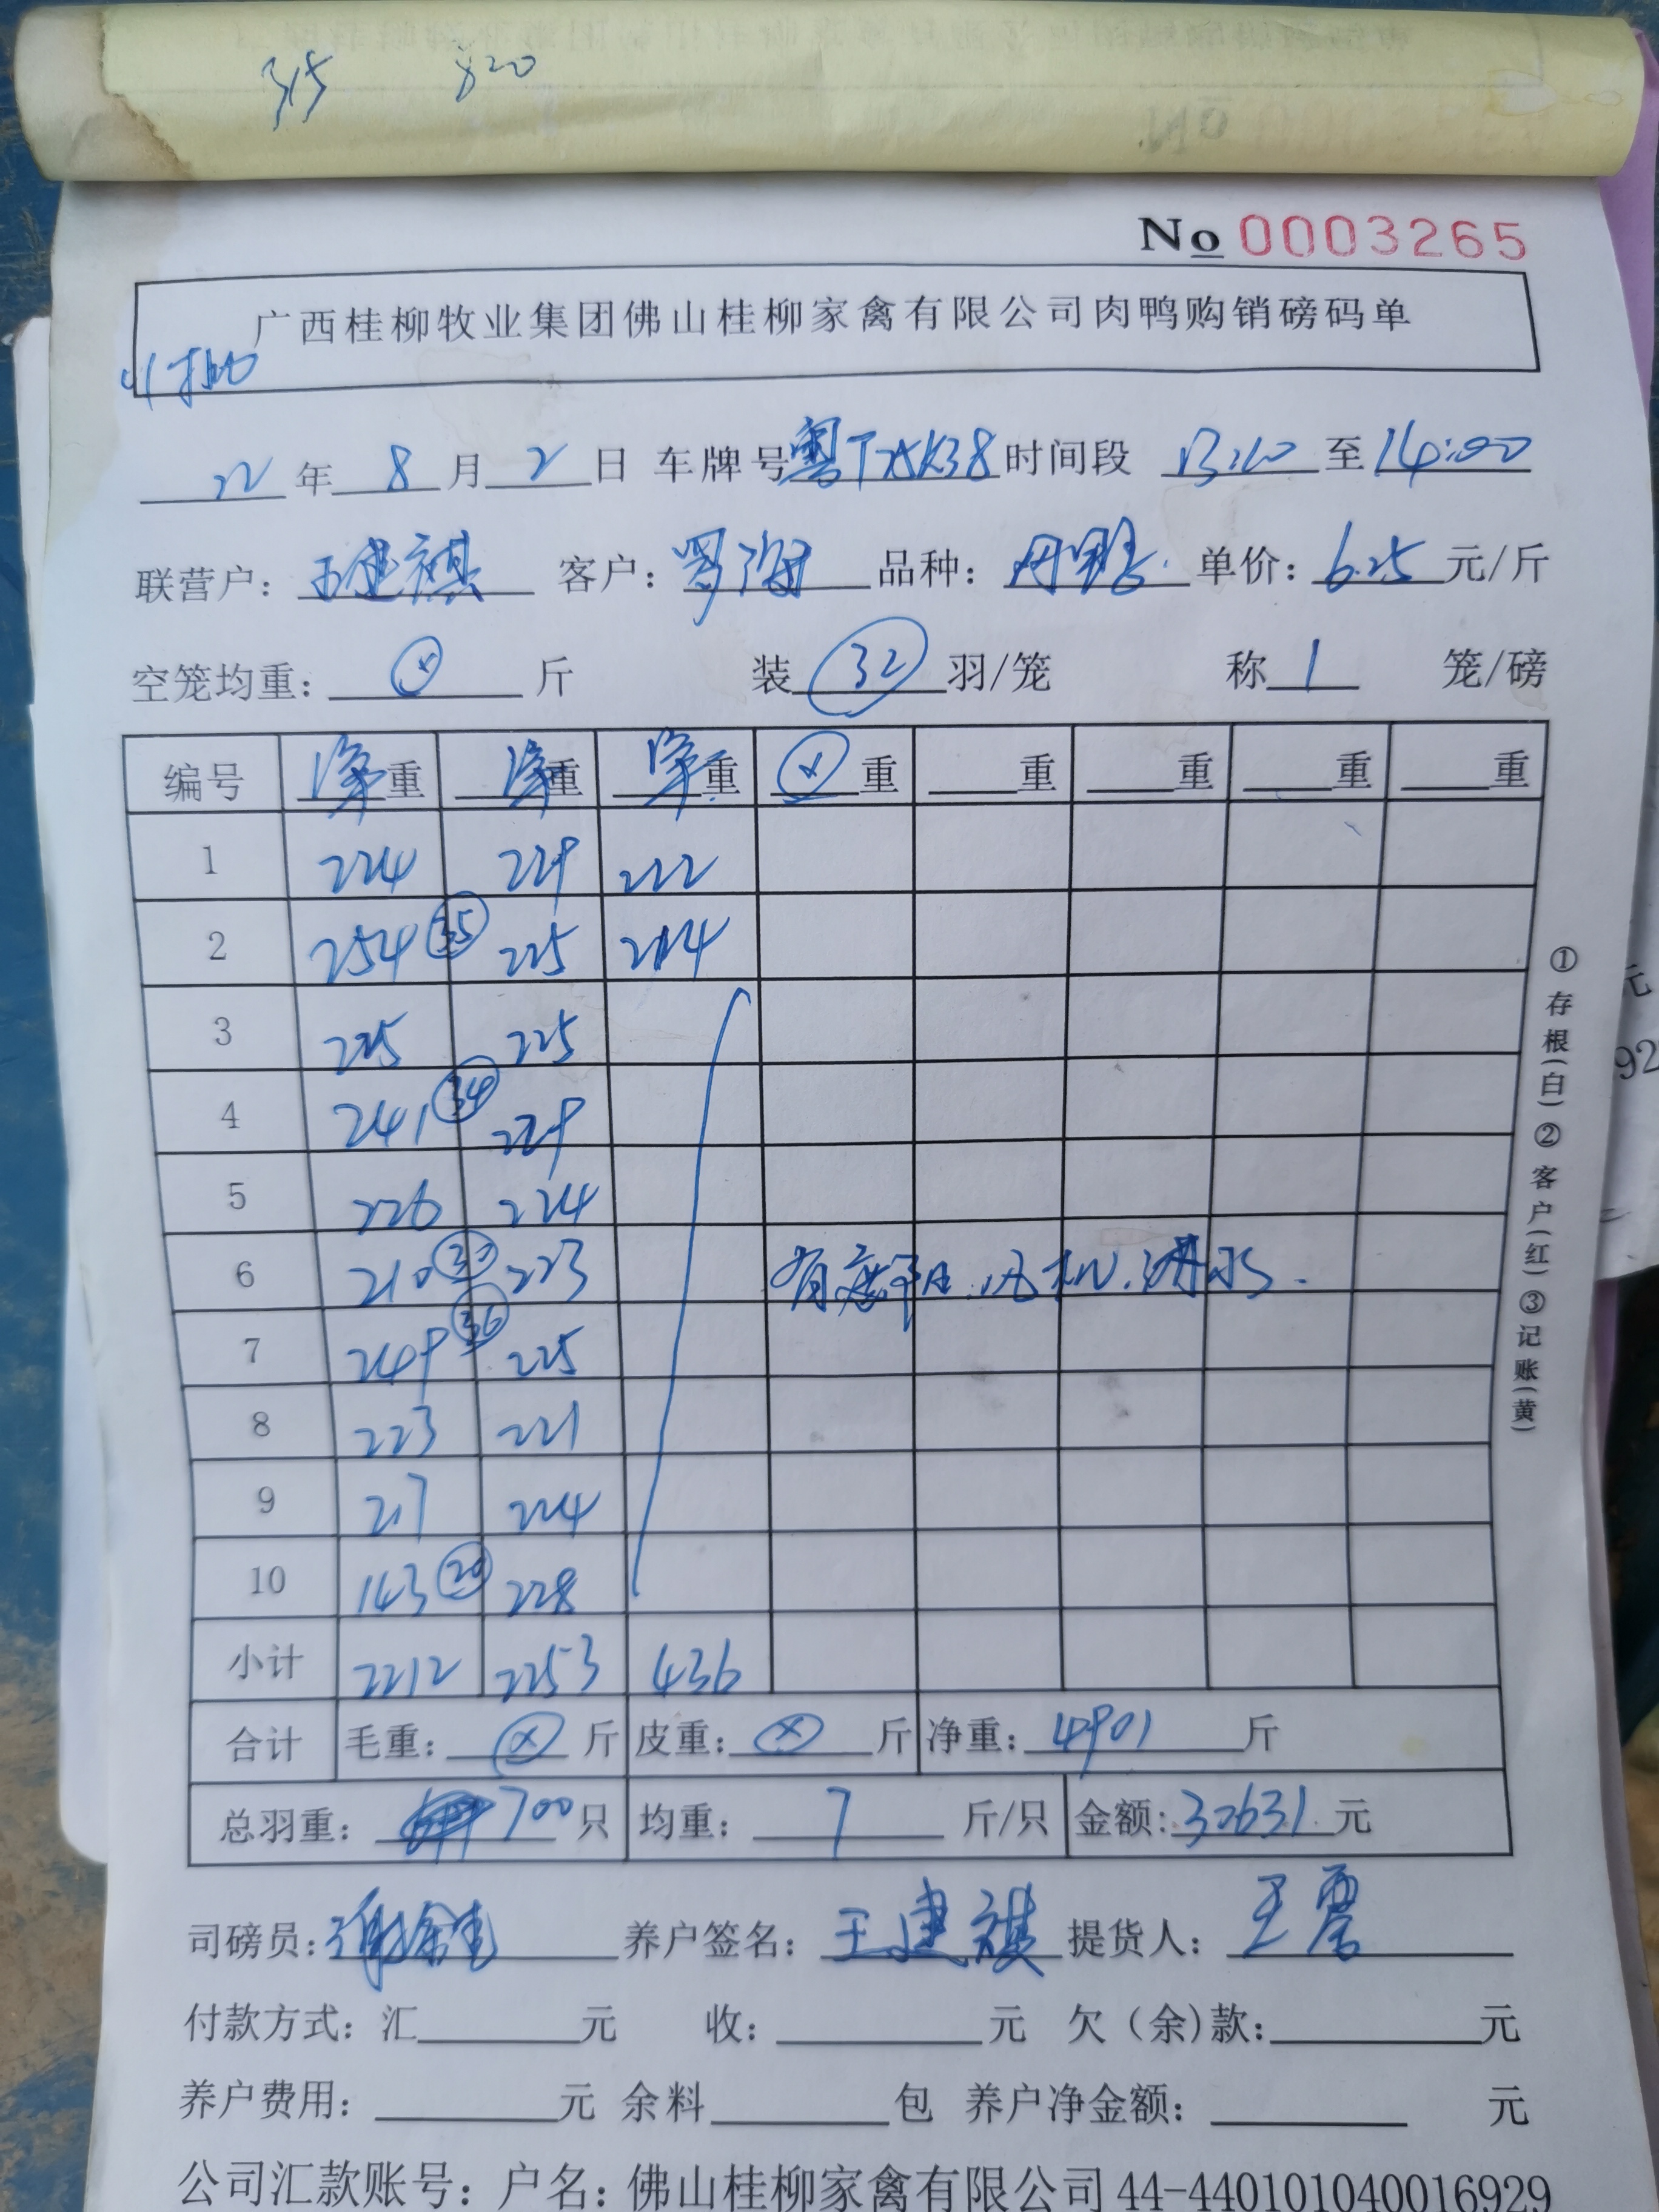 315 820
No 0003265
广西桂柳牧业集团佛山桂柳家禽有限公司肉鸭购销磅码单
22 年 8 月 2 日 车牌号 粤T25K38 时间段 13:10 至 14:00
联营户: 王建祺 客户: 罗海 品种: 单价: 6.25 元/斤
空笼均重: ⊗ 斤 装 32 羽/笼 称 1 笼/磅
编号 净重 净重 净重 ⊗重 重 重 重 重
1 224 229 222
2 254 (35) 225 214
3 225 225
4 241 (34) 229
5 226 224
6 210 223
7 249 (36) 225
8 223 221
9 217 224
10 143 (20) 228
有遮阳.风机.淋水.
小计 2212 2253 436
合计 毛重: ⊗ 斤 皮重: ⊗ 斤 净重: 4901 斤
总羽重: 700 只 均重: 7 斤/只 金额: 30631. 元
司磅员: 养户签名: 王建祺 提货人: 王
付款方式: 汇 元 收: 元 欠(余)款: 元
养户费用: 元 余料 包 养户净金额: 元
公司汇款账号: 户名: 佛山桂柳家禽有限公司 44-440101040016929
①存根(白)②客户(红)③记账(黄)
元
92